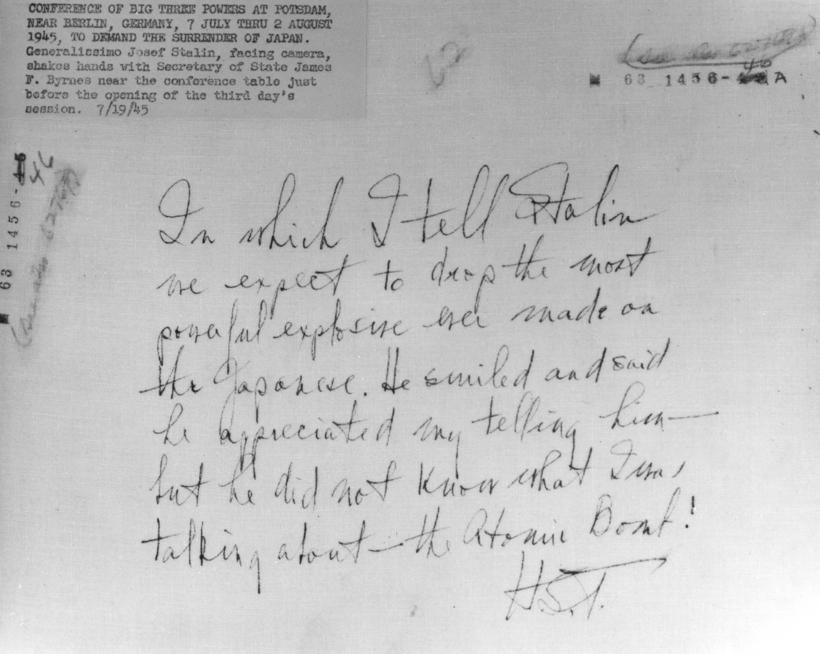 CONFERENCE OF BIG THREE POWERS AT POTSDAM,
NEAR BERLIN, GERMANY, 7 JULY THRU 2 AUGUST
1945, TO DEMAND THE SURRENDER OF JAPAN.
Generalissimo Josef Stalin, facing camera,
shakes hands with Secretary of State James
F. Byrnes near the conference table just
before the opening of the third day's
session. 7/19/45
62
63 1456- 46 A
63 1456- 46
In which I tell Stalin
we expect to drop the most
powerful explosive ever made on
the Japanese. He smiled and said
he appreciated my telling him—
but he did not know what I was
talking about—the Atomic Bomb!
H.S.T.